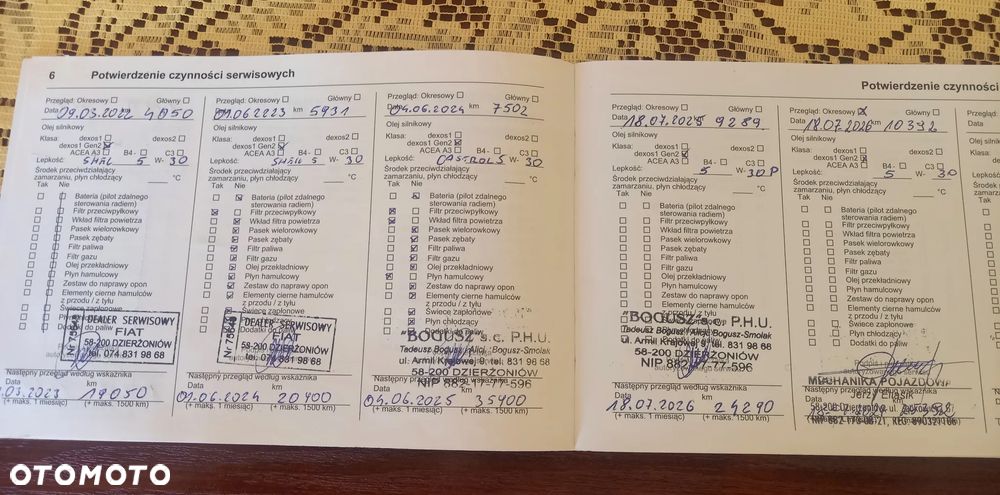 6 Potwierdzenie czynności serwisowych
Przegląd: Okresowy Główny
Data 09.03.2022 km 4050
Olej silnikowy
Klasa: dexos1 dexos2
dexos1 Gen2
ACEA A3 B4- C3
Lepkość: SHELL 5 W- 30
Środek przeciwdziałający
zamarzaniu, płyn chłodzący °C
Tak Nie
Bateria (pilot zdalnego
sterowania radiem)
Filtr przeciwpyłkowy
Wkład filtra powietrza
Pasek wielorowkowy
Pasek zębaty
Filtr paliwa
Filtr gazu
Olej przekładniowy
Płyn hamulcowy
Zestaw do naprawy opon
Elementy cierne hamulców
z przodu / z tyłu
Świece zapłonowe
DEALER SERWISOWY
FIAT
58-200 DZIERŻONIÓW
tel. 074 831 98 68
Nr 75648
Następny przegląd według wskaźnika
Data km
03.2023 19050
(+ maks. 1 miesiąc) (+ maks. 1500 km)
Przegląd: Okresowy Główny
Data 01.06.2023 km 5931
Olej silnikowy
Klasa: dexos1 dexos2
dexos1 Gen2
ACEA A3 B4- C3
Lepkość: SHELL 5 W- 30
Środek przeciwdziałający
zamarzaniu, płyn chłodzący °C
Tak Nie
Bateria (pilot zdalnego
sterowania radiem)
Filtr przeciwpyłkowy
Wkład filtra powietrza
Pasek wielorowkowy
Pasek zębaty
Filtr paliwa
Filtr gazu
Olej przekładniowy
Płyn hamulcowy
Zestaw do naprawy opon
Elementy cierne hamulców
z przodu / z tyłu
Świece zapłonowe
DEALER SERWISOWY
FIAT
58-200 DZIERŻONIÓW
tel. 074 831 98 68
Nr 75648
Następny przegląd według wskaźnika
Data km
01.06.2024 20900
(+ maks. 1 miesiąc) (+ maks. 1500 km)
Przegląd: Okresowy Główny
Data 04.06.2024 km 7502
Olej silnikowy
Klasa: dexos1 dexos2
dexos1 Gen2
ACEA A3 B4- C3
Lepkość: CASTROL 5 W- 30
Środek przeciwdziałający
zamarzaniu, płyn chłodzący °C
Tak Nie
Bateria (pilot zdalnego
sterowania radiem)
Filtr przeciwpyłkowy
Wkład filtra powietrza
Pasek wielorowkowy
Pasek zębaty
Filtr paliwa
Filtr gazu
Olej przekładniowy
Płyn hamulcowy
Zestaw do naprawy opon
Elementy cierne hamulców
z przodu / z tyłu
Świece zapłonowe
Płyn chłodzący
"BOGUSZ" s.c. P.H.U.
Tadeusz Bogusz / Alicja Bogusz-Smolak
ul. Armii Krajowej 9, tel. 831 96 68
58-200 DZIERŻONIÓW
Następny przegląd według wskaźnika
Data km
04.06.2025 35400
(+ maks. 1 miesiąc) (+ maks. 1500 km)
Potwierdzenie czynności
Przegląd: Okresowy Główny
Data 18.07.2025 9289
Olej silnikowy
Klasa: dexos1 dexos2
dexos1 Gen2
ACEA A3 B4- C3
Lepkość: 5 W- 30
Środek przeciwdziałający
zamarzaniu, płyn chłodzący °C
Tak Nie
Bateria (pilot zdalnego
sterowania radiem)
Filtr przeciwpyłkowy
Wkład filtra powietrza
Pasek wielorowkowy
Pasek zębaty
Filtr paliwa
Filtr gazu
Olej przekładniowy
Płyn hamulcowy
Zestaw do naprawy opon
Elementy cierne hamulców
z przodu / z tyłu
"BOGUSZ" s.c. P.H.U.
Tadeusz Bogusz / Alicja Bogusz-Smolak
ul. Armii Krajowej 9, tel. 831 96 68
58-200 DZIERŻONIÓW
Następny przegląd według wskaźnika
Data km
18.07.2026 24290
(+ maks. 1 miesiąc) (+ maks. 1500 km)
Przegląd: Okresowy Główny
Data 18.07.2026 km 10392
Olej silnikowy
Klasa: dexos1 dexos2
dexos1 Gen2
ACEA A3 B4- C3
Lepkość: 5 W- 30
Środek przeciwdziałający
zamarzaniu, płyn chłodzący °C
Tak Nie
Bateria (pilot zdalnego
sterowania radiem)
Filtr przeciwpyłkowy
Wkład filtra powietrza
Pasek wielorowkowy
Pasek zębaty
Filtr paliwa
Filtr gazu
Olej przekładniowy
Płyn hamulcowy
Zestaw do naprawy opon
Elementy cierne hamulców
z przodu / z tyłu
Świece zapłonowe
Płyn chłodzący
Dodatki do paliw
Następny przegląd według wskaźnika
MECHANIKA POJAZDOWA
Jerzy Eliasik
OTOMOTO